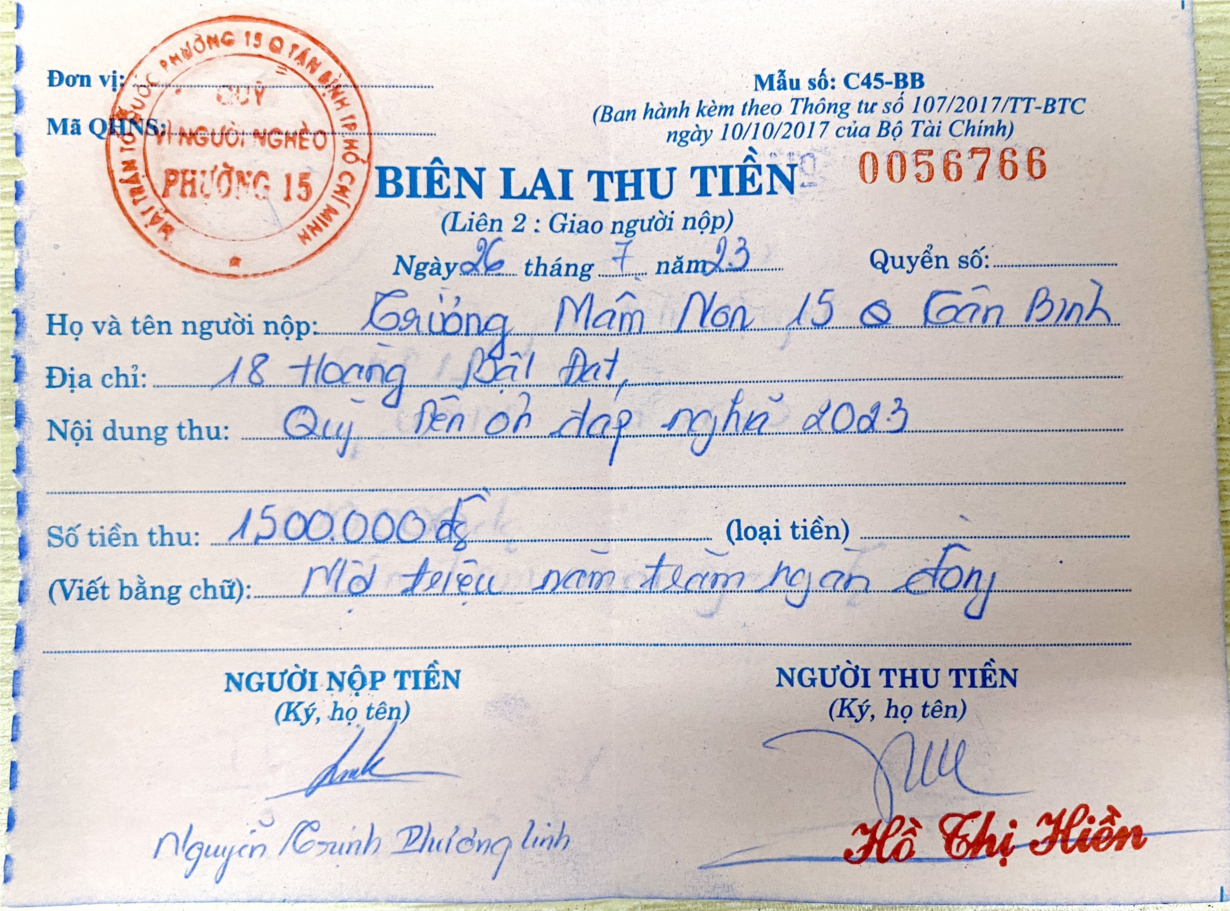 MẶT TRẬN TỔ QUỐC PHƯỜNG 15 Q TÂN BÌNH TP HỒ CHÍ MINH
QUỸ
VÌ NGƯỜI NGHÈO
PHƯỜNG 15
Đơn vị:
Mã QHNS:
Mẫu số: C45-BB
(Ban hành kèm theo Thông tư số 107/2017/TT-BTC
ngày 10/10/2017 của Bộ Tài Chính)
BIÊN LAI THU TIỀN
0056766
(Liên 2 : Giao người nộp)
Ngày 26 tháng 7 năm 23 Quyển số:
Họ và tên người nộp: Trường Mầm Non 15 Q Tân Bình
Địa chỉ: 18 Hoàng Bật Đạt,
Nội dung thu: Quỹ Đền ơn đáp nghĩa 2023
Số tiền thu: 1500.000đ (loại tiền)
(Viết bằng chữ): Một triệu năm trăm ngàn đồng
NGƯỜI NỘP TIỀN NGƯỜI THU TIỀN
(Ký, họ tên) (Ký, họ tên)
Nguyễn Trịnh Phương Linh
Hồ Thị Hiền